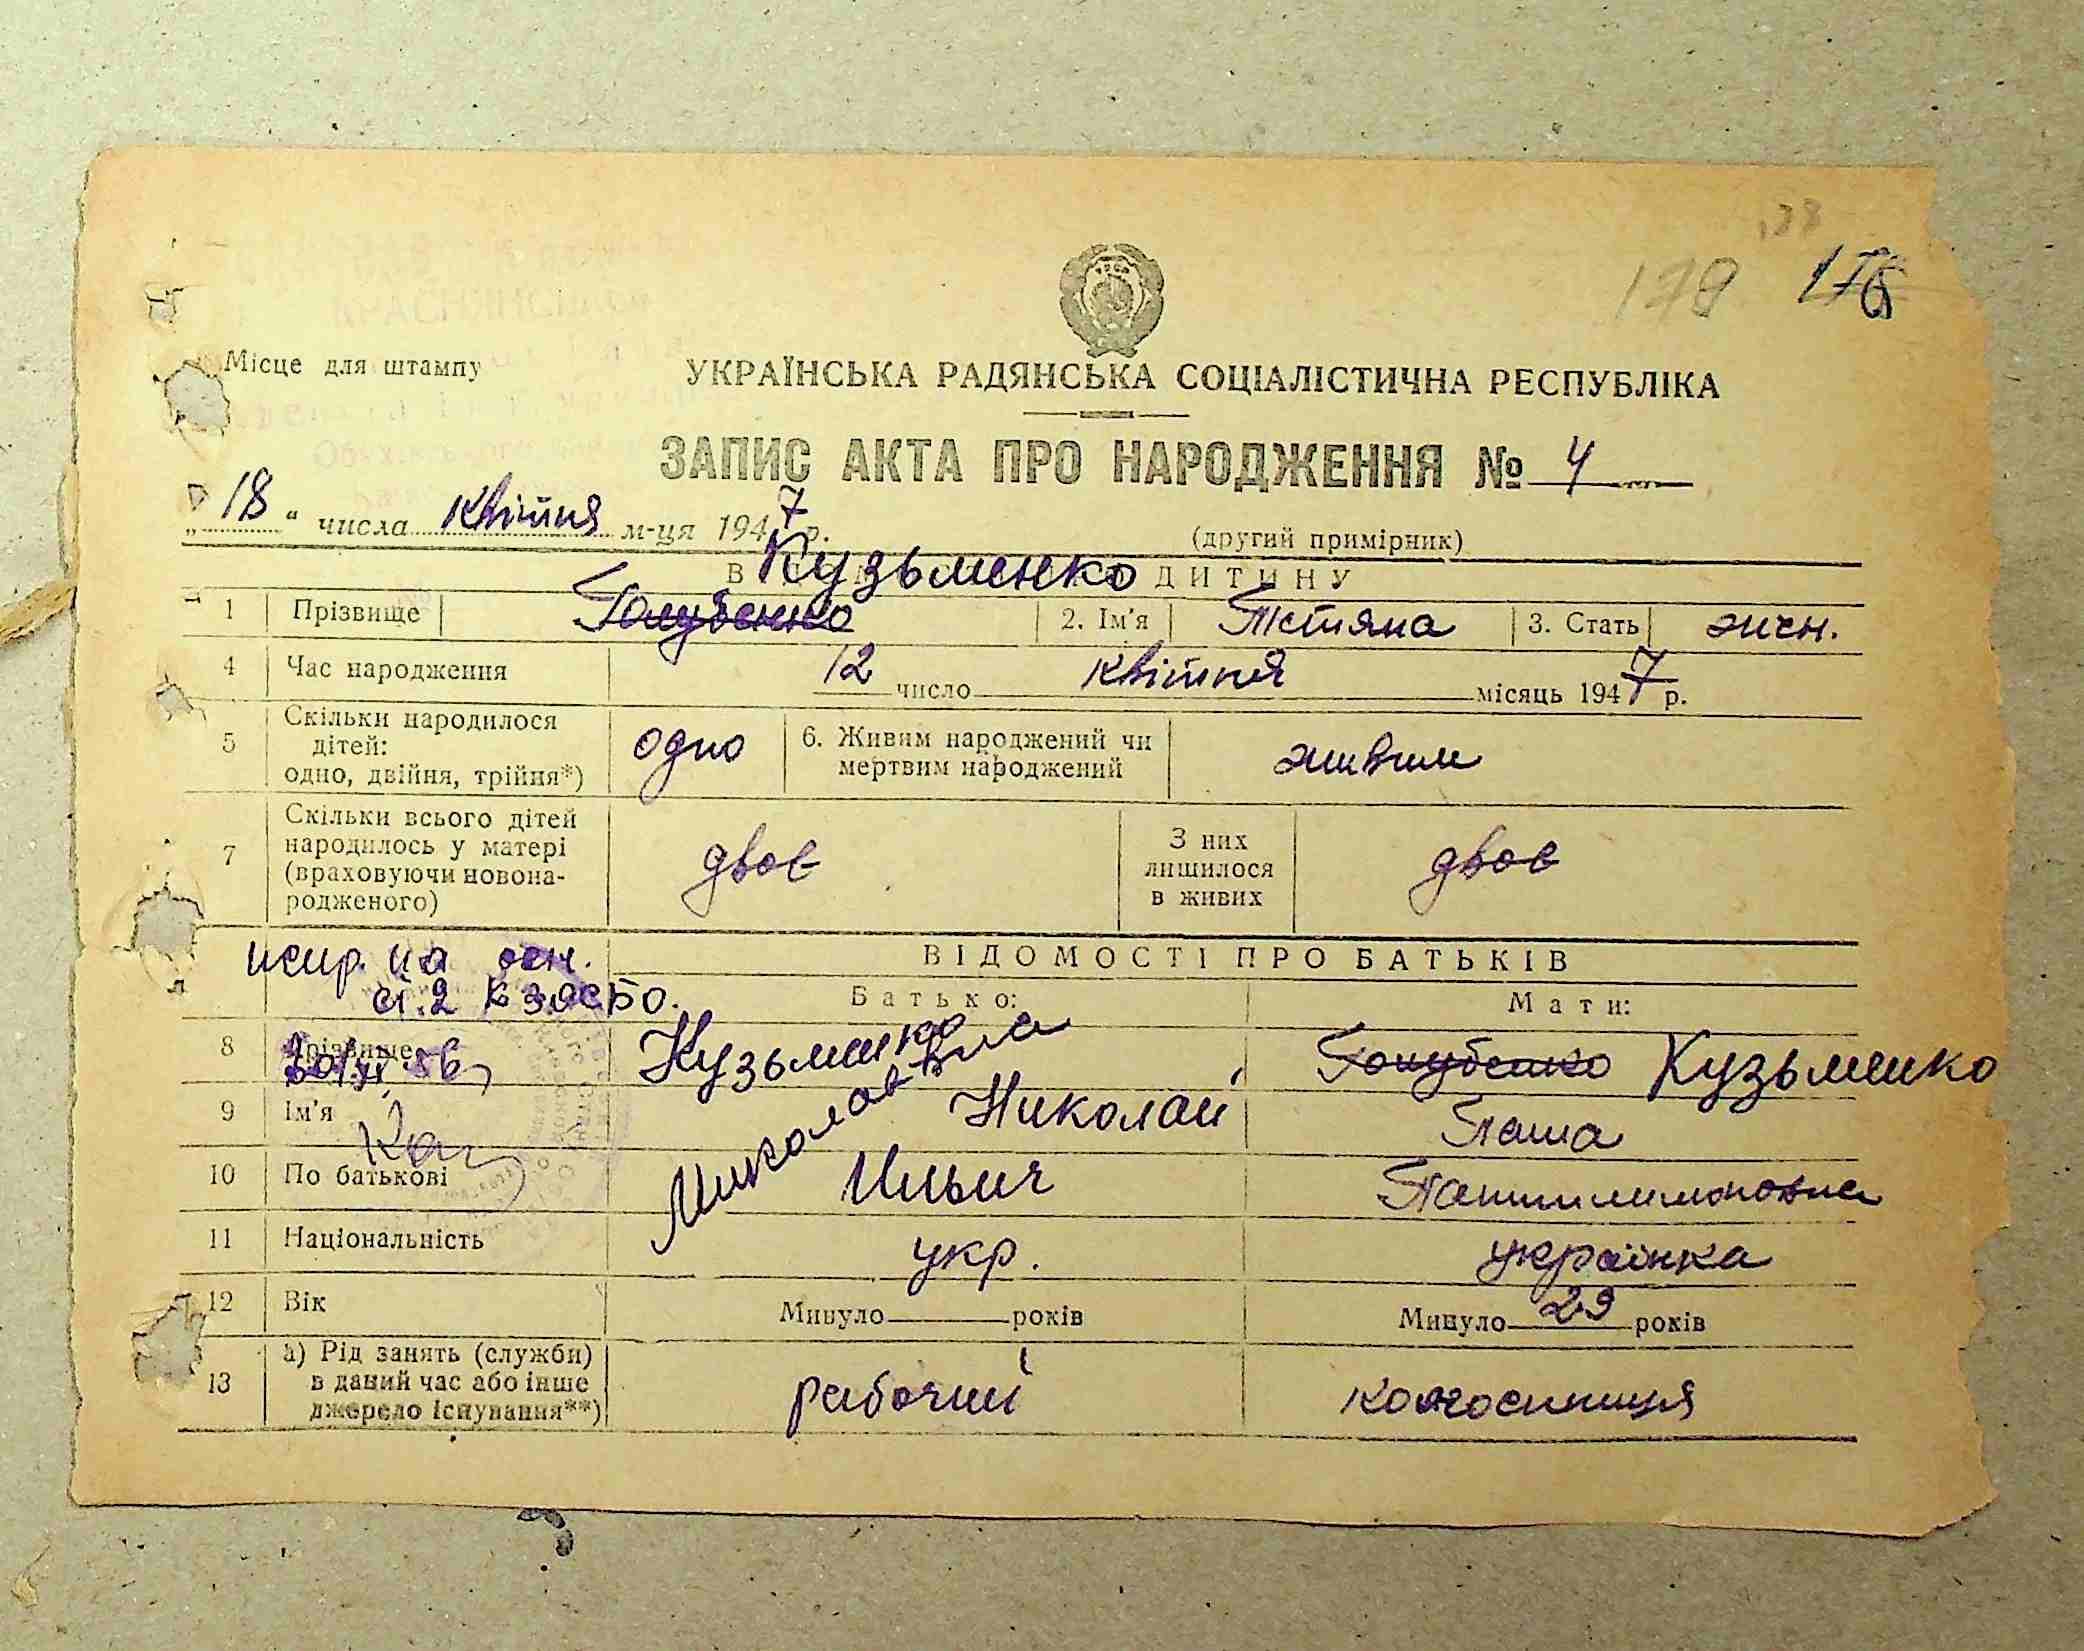 179 176
Місце для штампу
УКРАЇНСЬКА РАДЯНСЬКА СОЦІАЛІСТИЧНА РЕСПУБЛІКА
ЗАПИС АКТА ПРО НАРОДЖЕННЯ № 4
„18“ числа квітня м-ця 1947 р.
(другий примірник)
Кузьменко ДИТИНУ
1 Прізвище Голубенко 2. Ім'я Тетяна 3. Стать жен.
4 Час народження 12 число квітня місяць 1947 р.
5 Скільки народилося дітей: одно, двійня, трійня*) одно 6. Живим народжений чи мертвим народжений живим
7 Скільки всього дітей народилось у матері (враховуючи новонародженого) двоє З них лишилося в живих двоє
испр. на осн.
ст. 2 КЗоСБО.
ВІДОМОСТІ ПРО БАТЬКІВ
Батько: Мати:
8 Прізвище Кузьменко Голубенко Кузьменко
Миколаевна
9 Ім'я Николай Паша
10 По батькові Ильич Пантилимоновна
11 Національність укр. українка
12 Вік Минуло років Минуло 29 років
13 а) Рід занять (служби) в даний час або інше джерело існування**) рабочий колгоспниця